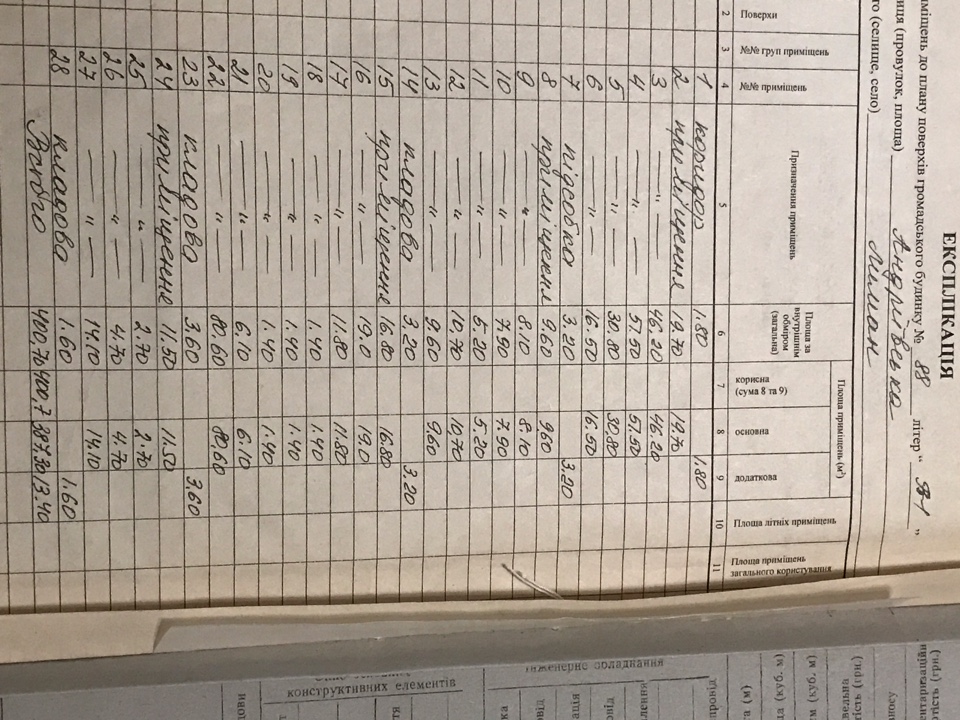 ЕКСПЛІКАЦІЯ
приміщень до плану поверхів громадського будинку № 88 літер "
(провулок, площа) Андріївська
(селище, село) Лиман
Поверхи
№№ груп приміщень
№№ приміщень
Призначення приміщень
Площа за внутрішнім обміром (загальна)
Площа приміщень (м²)
корисна (сума 8 та 9)
основна
додаткова
Площа літніх приміщень
Площа приміщень загального користування
2 3 4 5 6 7 8 9 10 11
1 коридор 1.80 1.80
2 приміщення 19.70 19.70
3 — " — 46.20 46.20
4 — " — 57.50 57.50
5 — " — 30.80 30.80
6 — " — 16.50 16.50
7 підсобка 3.20 3.20
8 приміщення 9.60 9.60
9 " 8.10 8.10
10 — " — 7.90 7.90
11 — " — 5.20 5.20
12 — " — 10.70 10.70
13 — " — 9.60 9.60
14 кладова 3.20 3.20
15 приміщення 16.80 16.80
16 — " — 19.0 19.10
17 — " — 11.80 11.80
18 — " — 1.40 1.40
19 — " — 1.40 1.40
20 — " — 1.40 1.40
21 — " — 6.10 6.10
22 — " — 80.60 80.60
23 кладова 3.60 3.60
24 приміщення 11.50 11.50
25 — " — 2.70 2.70
26 — " — 4.70 4.70
27 — " — 14.10 14.10
28 кладова 1.60 1.60
400,70 400,7 387.30 13.40
інженерне обладнання
конструктивних елементів